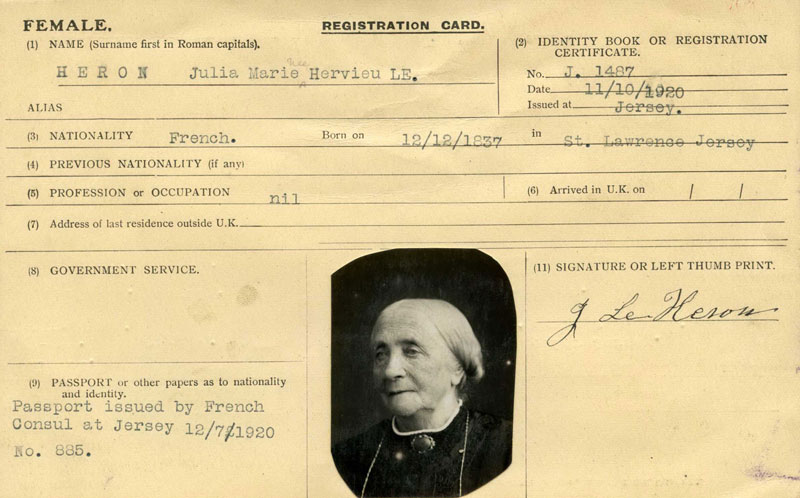 FEMALE. REGISTRATION CARD.
(1) NAME (Surname first in Roman capitals).
HERON Julia Marie née Hervieu LE.
ALIAS
(2) IDENTITY BOOK OR REGISTRATION
CERTIFICATE.
No. J. 1487
Date 11/10/1920
Issued at Jersey.
(3) NATIONALITY French. Born on 12/12/1837 in St. Lawrence Jersey
(4) PREVIOUS NATIONALITY (if any)
(5) PROFESSION or OCCUPATION nil
(6) Arrived in U.K. on / /
(7) Address of last residence outside U.K.
(8) GOVERNMENT SERVICE.
(9) PASSPORT or other papers as to nationality
and identity.
Passport issued by French
Consul at Jersey 12/7/1920
No. 885.
(11) SIGNATURE OR LEFT THUMB PRINT.
J Le Heron